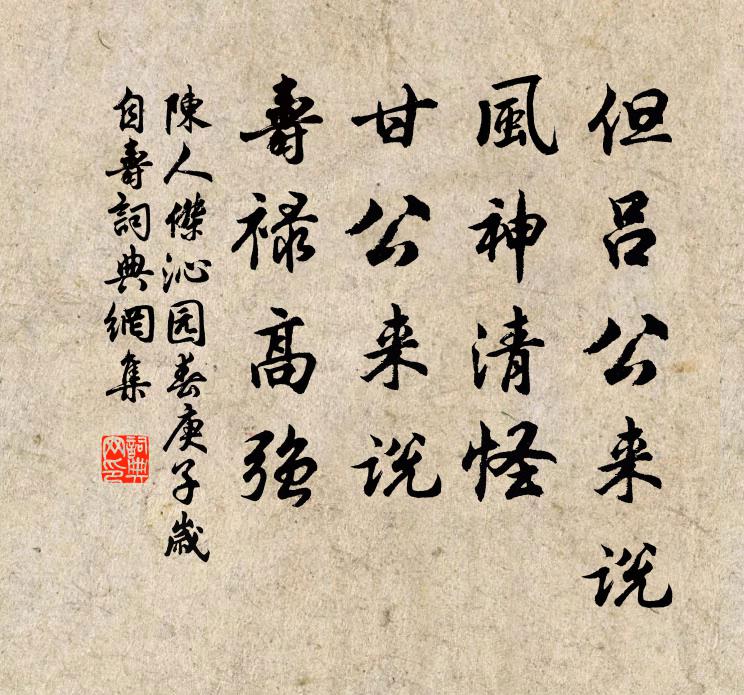 但吕公来说
風神清怪
甘公来说
壽禄高强
陳人傑沁园春庚子歲
自壽詞典網集
詞典
网印